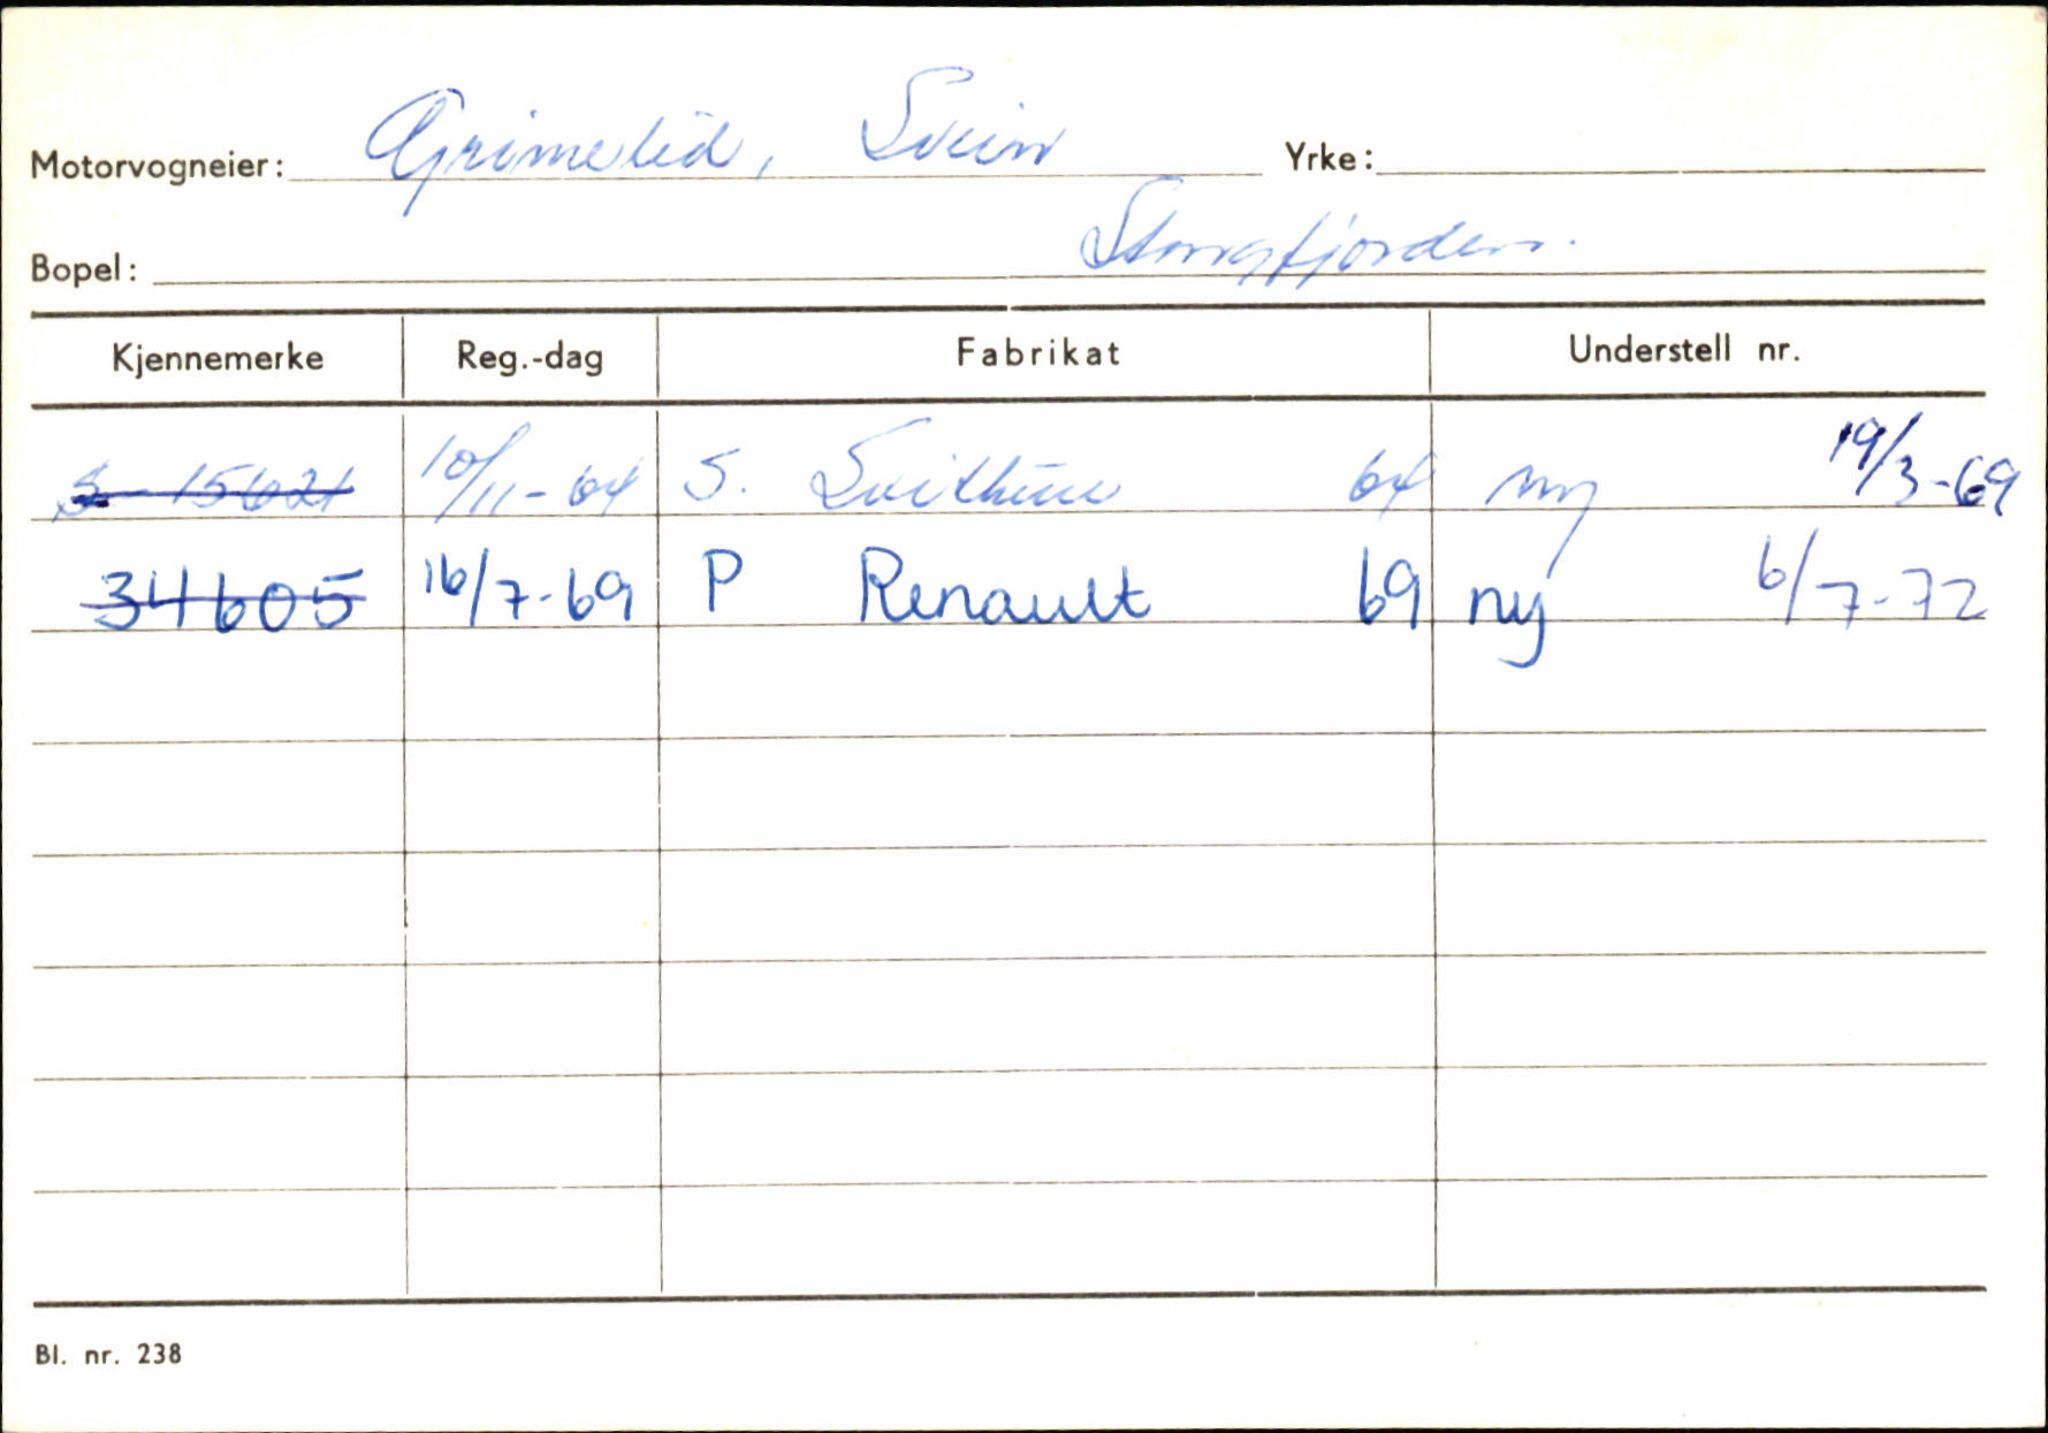 Motorvogneier: Grimelid, Svein Yrke:
Bopel: Stongfjorden.
Kjennemerke Reg.-dag Fabrikat Understell nr.
S-15621 10/11-64 S. Svithun 64 ny 19/3-69
34605 16/7-69 P Renault 69 ny 6/7-72
Bl. nr. 238